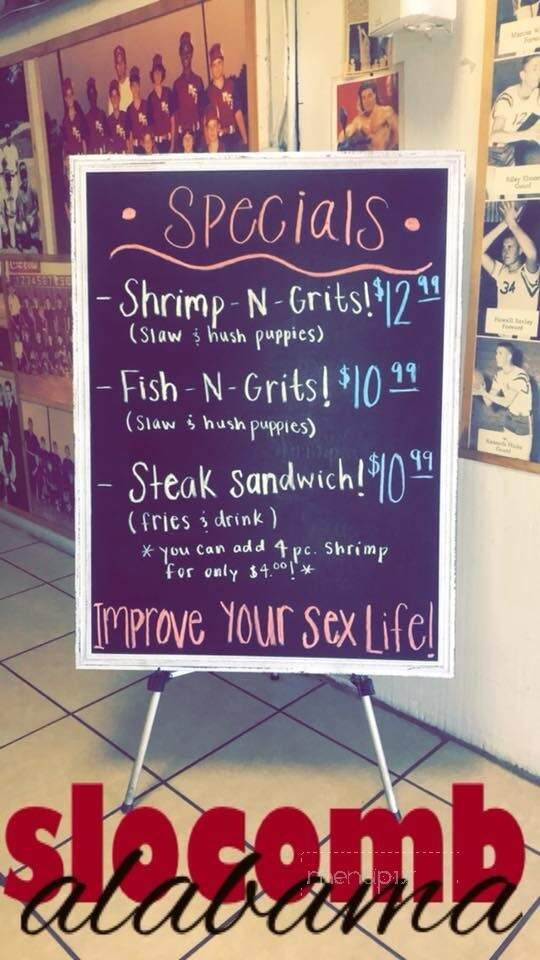 • Specials •
- Shrimp-N-Grits! $12.99
(Slaw & hush puppies)
- Fish-N-Grits! $10 99
(Slaw & hush puppies)
- Steak Sandwich! $10 99
(fries & drink)
* you can add 4 pc. Shrimp
for only $4.00! *
Improve Your Sex Life!
34
12
slocomb
alabama
menupix